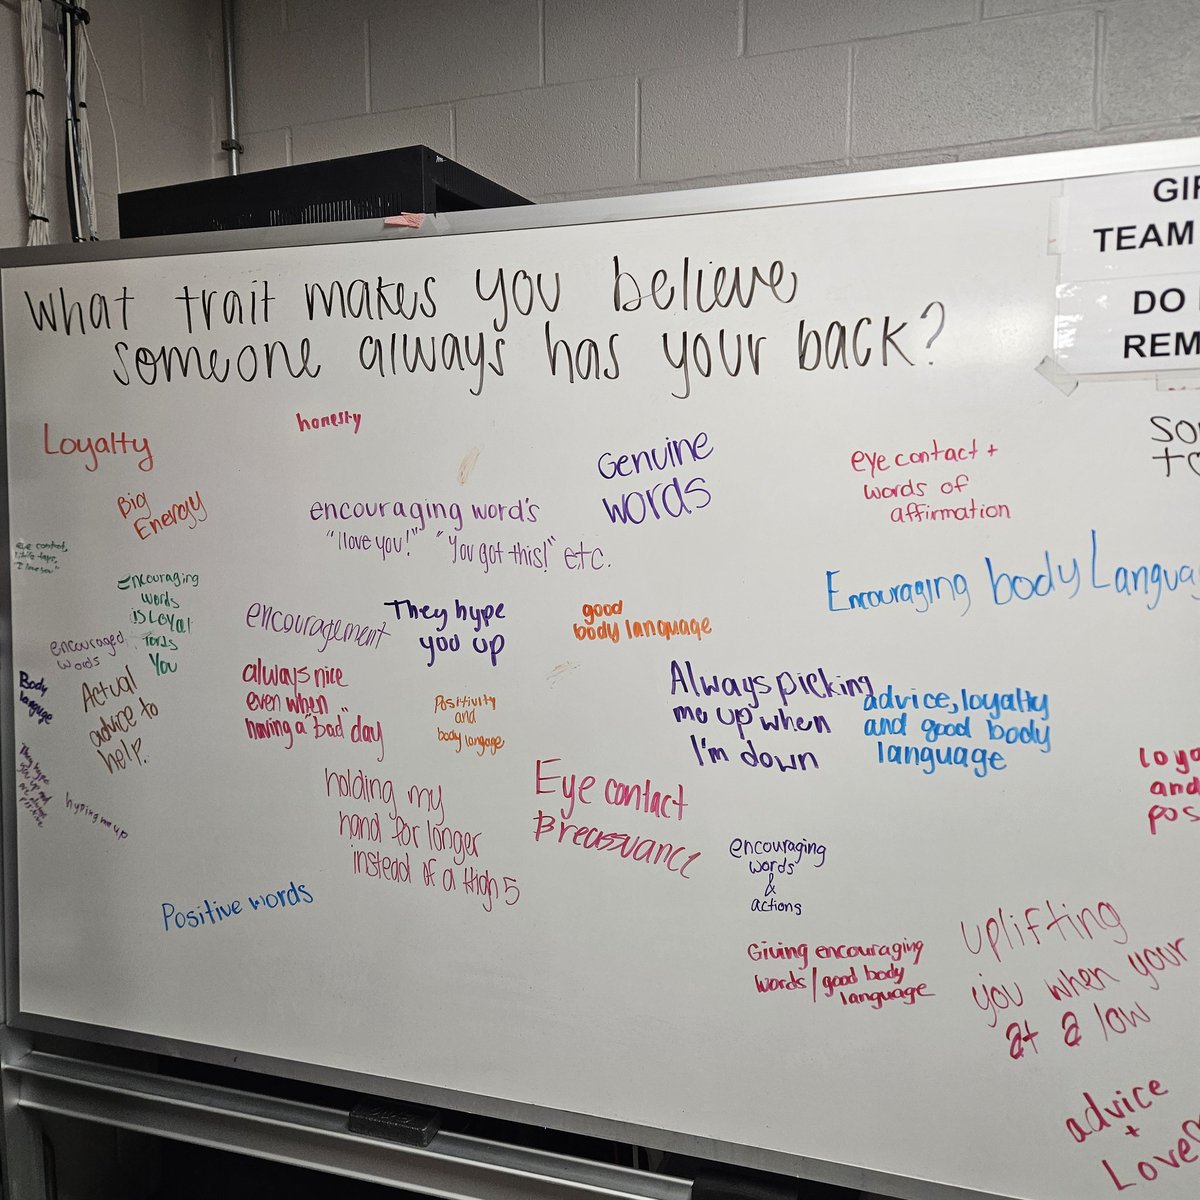 What trait makes you believe
someone always has your back?
GIR
TEAM
DO
REM
Loyalty
honesty
Big
Energy
encouraging word's
"I love you!" "You got this!" etc.
Genuine
words
eye contact +
words of
affirmation
eye contact,
"I love you"
Encouraging
words
is Loyal
You
encouraged
words
encouragement
They hype
you up
good
body language
Encouraging body Languag
Body
Languge
Actual
advice to
help.
always nice
even when
having a "bad" day
Positivity
and
body langage
Always picking
me up when
I'm down
advice, loyalty
and good body
language
loya
and
pos
They hype
you up and
hyping me up
holding my
hand for longer
instead of a High 5
Eye contact
reassurance
encouraging
words
&
actions
Positive words
Giving encouraging
words/good body
language
uplifting
you when your
at a low
advice
+
Love